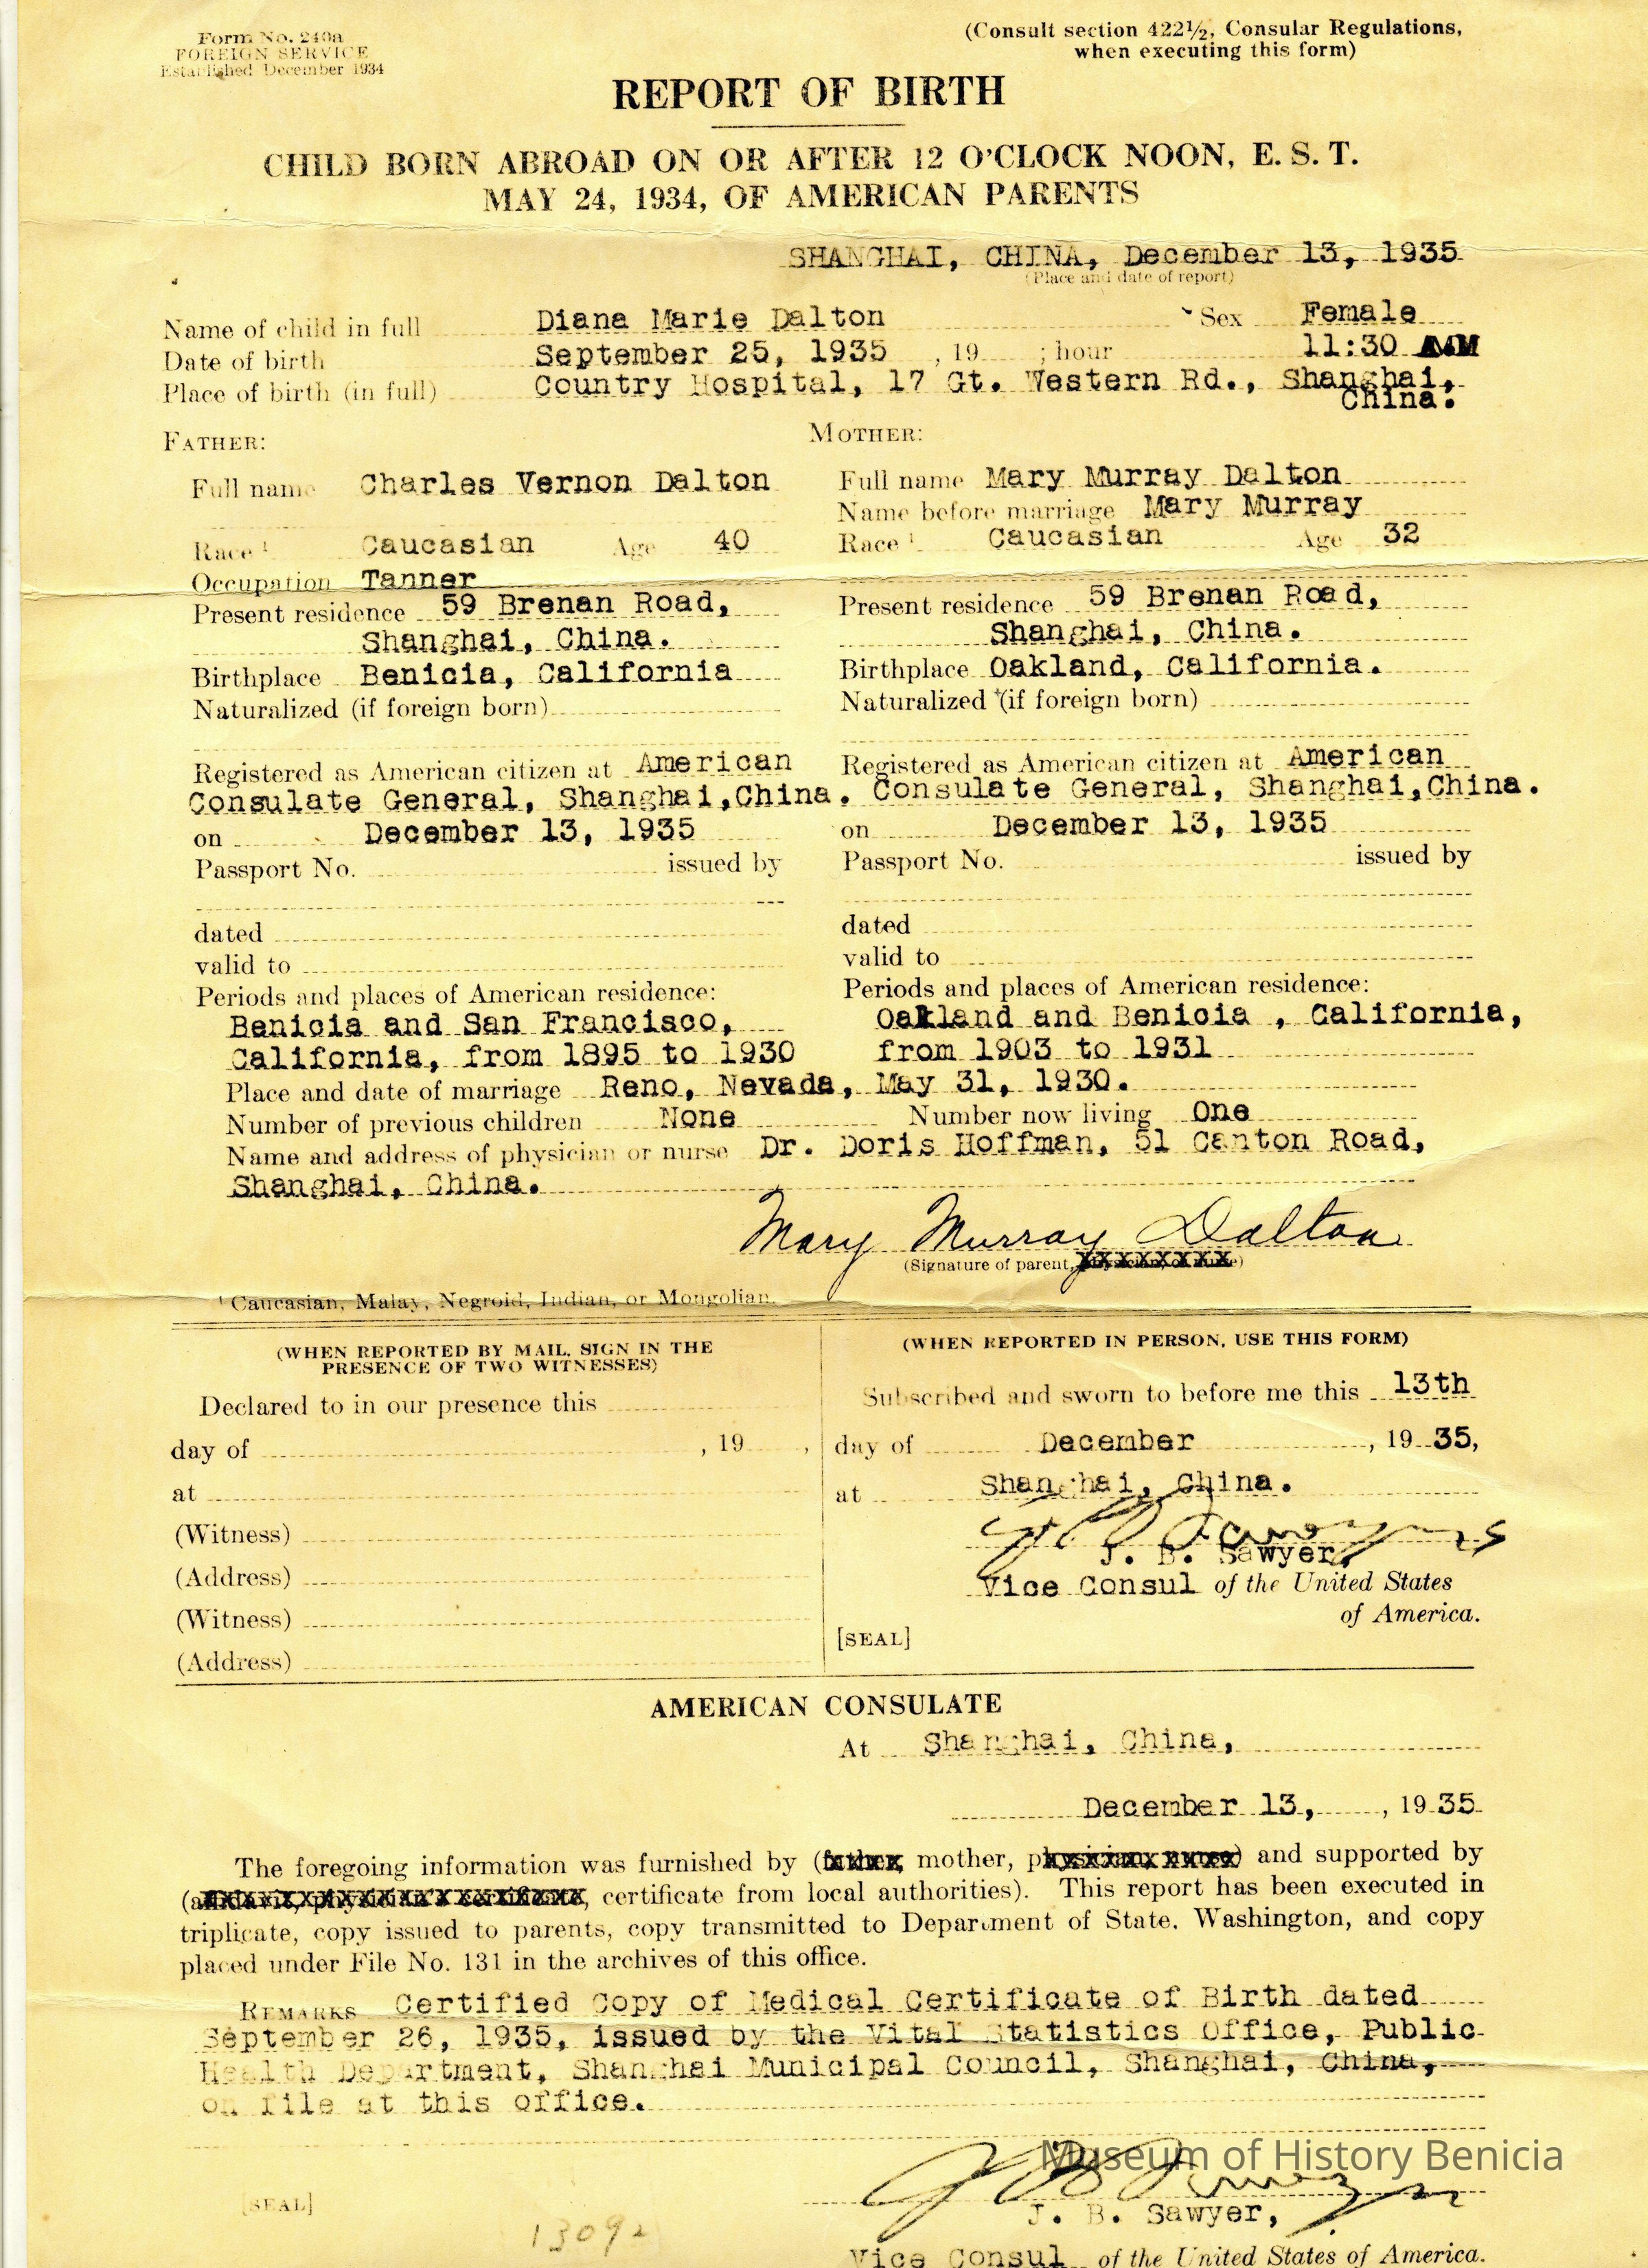 Form No. 240a
FOREIGN SERVICE
Established December 1934
(Consult section 422½, Consular Regulations,
when executing this form)
REPORT OF BIRTH
CHILD BORN ABROAD ON OR AFTER 12 O'CLOCK NOON, E. S. T.
MAY 24, 1934, OF AMERICAN PARENTS
SHANGHAI, CHINA, December 13, 1935
(Place and date of report)
Name of child in full Diana Marie Dalton Sex Female
Date of birth September 25, 1935 , 19 ; hour 11:30 AM
Place of birth (in full) Country Hospital, 17 Gt. Western Rd., Shanghai,
China.
FATHER:
Full name Charles Vernon Dalton
Race ¹ Caucasian Age 40
Occupation Tanner
Present residence 59 Brenan Road,
Shanghai, China.
Birthplace Benicia, California
Naturalized (if foreign born)
Registered as American citizen at American
Consulate General, Shanghai,China.
on December 13, 1935
Passport No. issued by
dated
valid to
Periods and places of American residence:
Benicia and San Francisco,
California, from 1895 to 1930
MOTHER:
Full name Mary Murray Dalton
Name before marriage Mary Murray
Race ¹ Caucasian Age 32
Present residence 59 Brenan Road,
Shanghai, China.
Birthplace Oakland, California.
Naturalized (if foreign born)
Registered as American citizen at American
Consulate General, Shanghai,China.
on December 13, 1935
Passport No. issued by
dated
valid to
Periods and places of American residence:
Oakland and Benicia , California,
from 1903 to 1931
Place and date of marriage Reno, Nevada, May 31, 1930.
Number of previous children None Number now living One
Name and address of physician or nurse Dr. Doris Hoffman, 51 Canton Road,
Shanghai, China.
Mary Murray Dalton
(Signature of parent, physician, or nurse)
¹ Caucasian, Malay, Negroid, Indian, or Mongolian.
(WHEN REPORTED BY MAIL, SIGN IN THE
PRESENCE OF TWO WITNESSES)
Declared to in our presence this
day of , 19 ,
at
(Witness)
(Address)
(Witness)
(Address)
(WHEN REPORTED IN PERSON, USE THIS FORM)
Subscribed and sworn to before me this 13th
day of December , 19 35,
at Shanghai, China.
J. B. Sawyer,
Vice Consul of the United States
of America.
[SEAL]
AMERICAN CONSULATE
At Shanghai, China,
December 13, , 19 35
The foregoing information was furnished by (father, mother, physician, nurse) and supported by
(affidavit, physician's certificate, certificate from local authorities). This report has been executed in
triplicate, copy issued to parents, copy transmitted to Department of State, Washington, and copy
placed under File No. 131 in the archives of this office.
REMARKS Certified Copy of Medical Certificate of Birth dated
September 26, 1935, issued by the Vital Statistics Office, Public
Health Department, Shanghai Municipal Council, Shanghai, China,
on file at this office.
Museum of History Benicia
[SEAL]
J. B. Sawyer,
13092
Vice Consul of the United States of America.